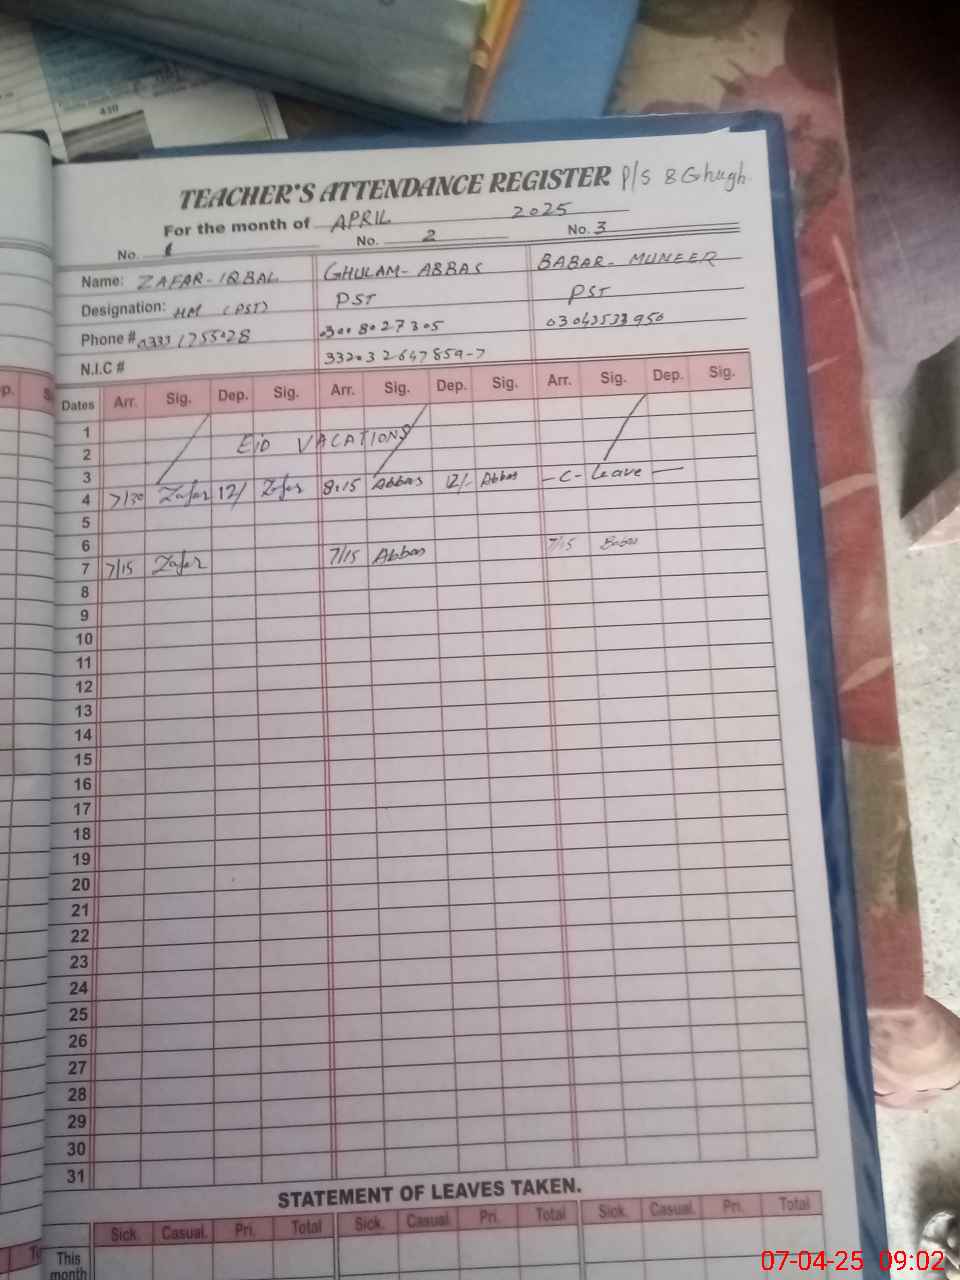 430
TEACHER'S ATTENDANCE REGISTER P/S B Ghugh.
For the month of APRIL 2025
No. 1 No. 2 No. 3
Name: ZAFAR-IQBAL GHULAM-ABBAS BABAR-MUNEER
Designation: HM (PST) PST PST
Phone #
N.I.C #
Dates Arr. Sig. Dep. Sig. Arr. Sig. Dep. Sig. Arr. Sig. Dep. Sig.
1
2 EID VACATIONS
3
4 7/30 Zafar 12/ Zafar 8:15 Abbas 12/- Abbas -C-Leave-
5
6
7 7/15 Zafar 7/15 Abbas 7/15 Babar
8
9
10
11
12
13
14
15
16
17
18
19
20
21
22
23
24
25
26
27
28
29
30
31
STATEMENT OF LEAVES TAKEN.
Sick. Casual. Pri. Total Sick. Casual. Pri. Total Sick. Casual. Pri. Total
This
month
07-04-25 09:02